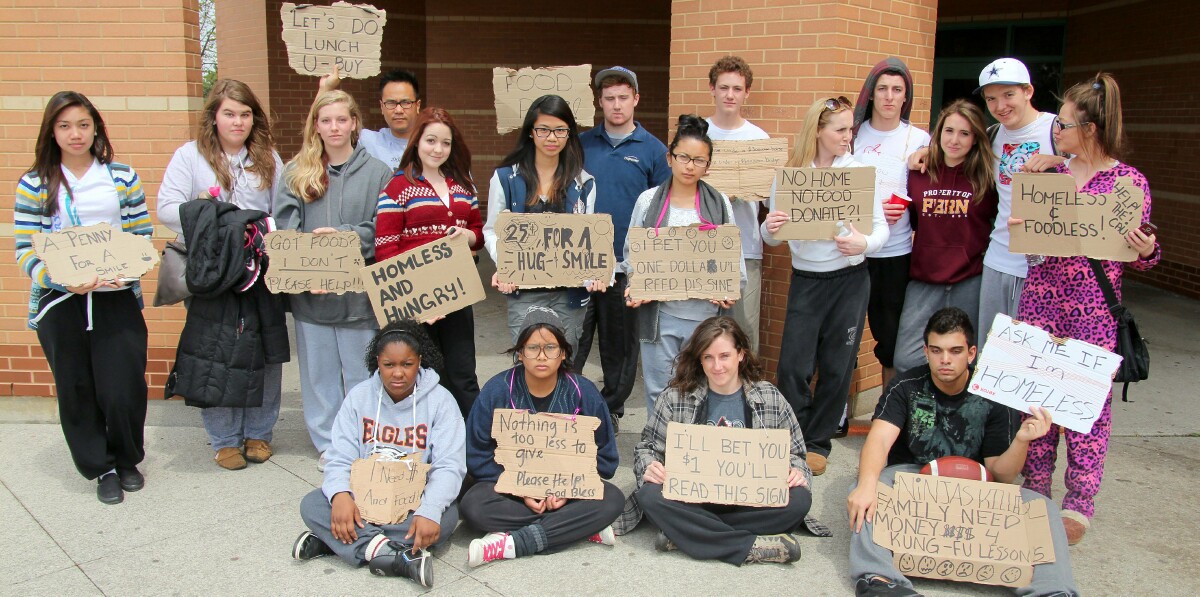 LET'S DO
LUNCH
U-BUY
FOOD
A PENNY
FOR A
SMILE
GOT FOOD?
I DON'T
PLEASE HELP!!!
HOMLESS
AND
HUNGRY!
25¢ FOR A
HUG + SMILE
I BET YOU
ONE DOLLAR U
REED DIS SINE
NO HOME
NO FOOD
DONATE?!
PROPERTY OF
PERN
HOMELESS
&
FOODLESS!
HELP ME
I CAN
EAGLES
I Need
Food!
Nothing is
too less to
give
Please Help!
God Bless
I'LL BET YOU
$1 YOU'LL
READ THIS SIGN
ASK ME IF
I'm
HOMELESS
NINJAS KILLED
FAMILY NEED
MONEY 4
KUNG-FU LESSONS